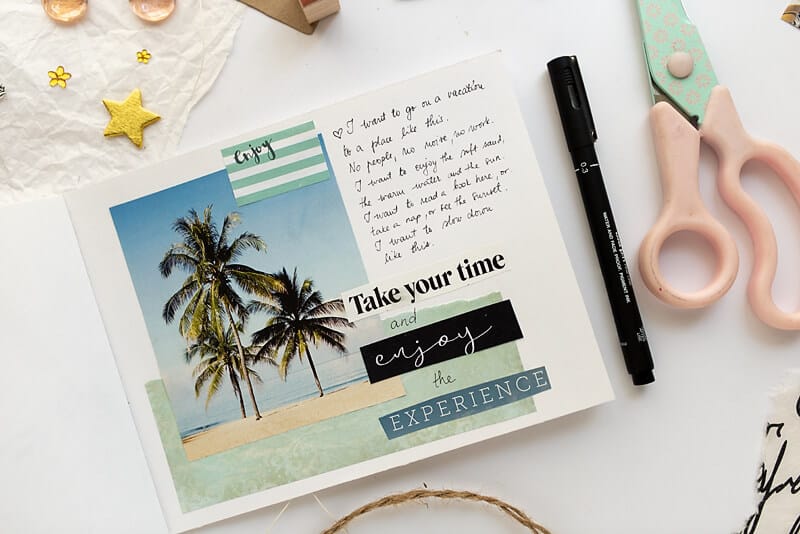 enjoy
♡ I want to go on a vacation
to a place like this.
No people, no noise, no work.
I want to enjoy the soft sand,
the warm water and the sun.
I want to read a book here, or
take a nap, or see the sunset.
I want to slow down
like this.
Take your time
and
enjoy
the
EXPERIENCE
0.3
WATER AND FADE PROOF, PIGMENT INK